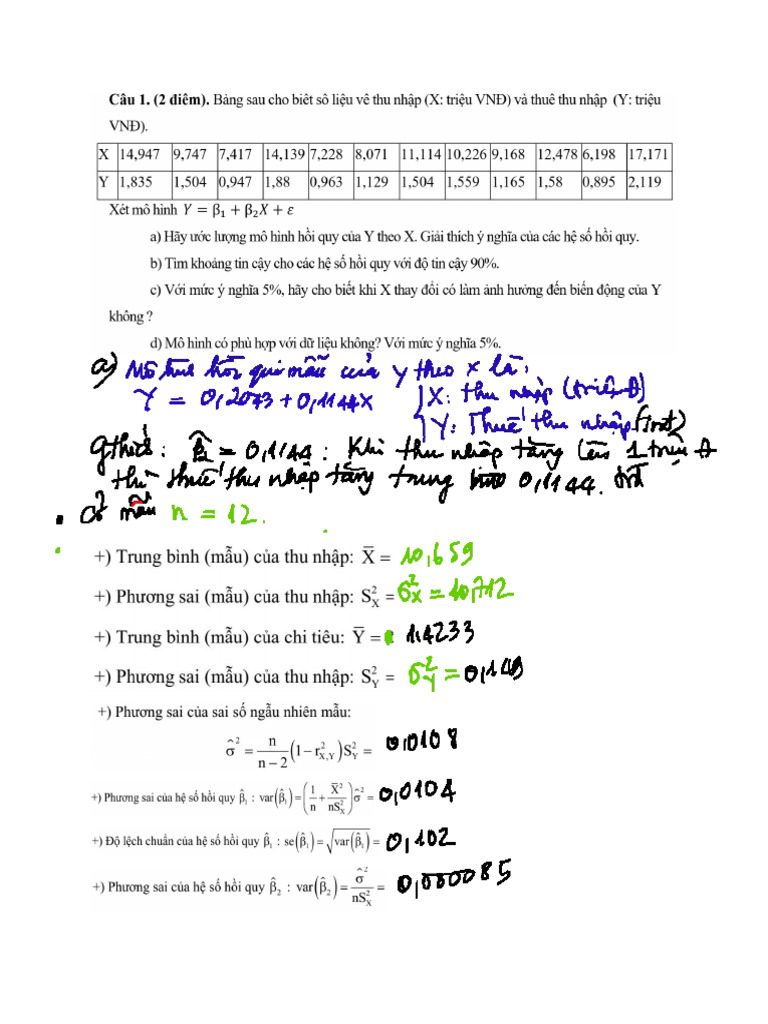 Câu 1. (2 điểm). Bảng sau cho biết số liệu về thu nhập (X: triệu VNĐ) và thuế thu nhập (Y: triệu
VNĐ).
X 14,947 9,747 7,417 14,139 7,228 8,071 11,114 10,226 9,168 12,478 6,198 17,171
Y 1,835 1,504 0,947 1,88 0,963 1,129 1,504 1,559 1,165 1,58 0,895 2,119
Xét mô hình Y = β₁ + β₂X + ε
a) Hãy ước lượng mô hình hồi quy của Y theo X. Giải thích ý nghĩa của các hệ số hồi quy.
b) Tìm khoảng tin cậy cho các hệ số hồi quy với độ tin cậy 90%.
c) Với mức ý nghĩa 5%, hãy cho biết khi X thay đổi có làm ảnh hưởng đến biến động của Y
không ?
d) Mô hình có phù hợp với dữ liệu không? Với mức ý nghĩa 5%.
a) Mô hình hồi qui mẫu của Y theo X là:
Y = 0,2073 + 0,1144X { X: thu nhập (triệu Đ)
Y: Thuế thu nhập
gthích: = 0,1144: Khi thu nhập tăng lên 1 triệu Đ
thì thuế thu nhập tăng trung bình 0,1144.
Cỡ mẫu n = 12.
+) Trung bình (mẫu) của thu nhập: X̄ = 10,659
+) Phương sai (mẫu) của thu nhập: S²X = σ²X = 10,712
+) Trung bình (mẫu) của chi tiêu: Ȳ = 1,4233
+) Phương sai (mẫu) của thu nhập: S²Y = σ²Y = 0,149
+) Phương sai của sai số ngẫu nhiên mẫu:
σ̂² = n/(n − 2) (1 − r²X,Y) S²Y = 0,0108
+) Phương sai của hệ số hồi quy β̂₁ : var(β̂₁) = (1/n + X̄²/nS²X) σ̂² = 0,0104
+) Độ lệch chuẩn của hệ số hồi quy β̂₁ : se(β̂₁) = √var(β̂₁) = 0,102
+) Phương sai của hệ số hồi quy β̂₂ : var(β̂₂) = σ̂²/nS²X = 0,000085